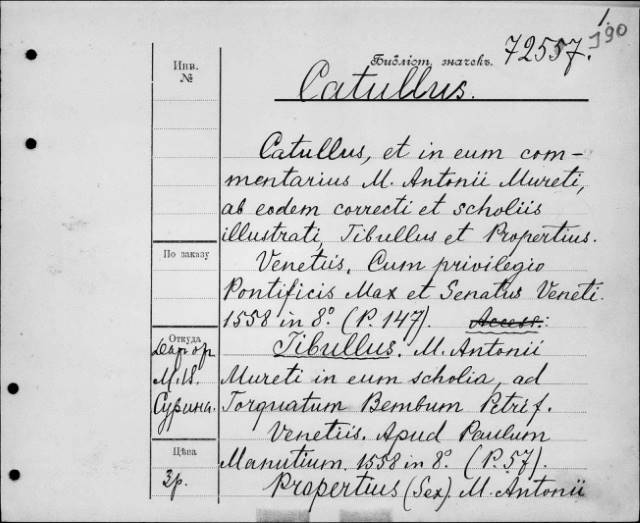 1.
190
Библіот. значекъ. 72557.
Инв.
№
Catullus.
Catullus, et in eum com-
mentarius M. Antonii Mureti,
ab eodem correcti et scholiis
illustrati, Tibullus et Propertius.
По заказу
Venetiis. Cum privilegio
Pontificis Max et Senatus Veneti.
1558 in 8º. (P. 147). Access:
Откуда
Tibullus. M. Antonii
М. И.
Mureti in eum scholia, ad
Сурина.
Torquatum Bembum Petri f.
Venetiis. Apud Paulum
Цѣна
Manutium. 1558 in 8º. (P. 57).
3р.
Propertius (Sex). M. Antonii